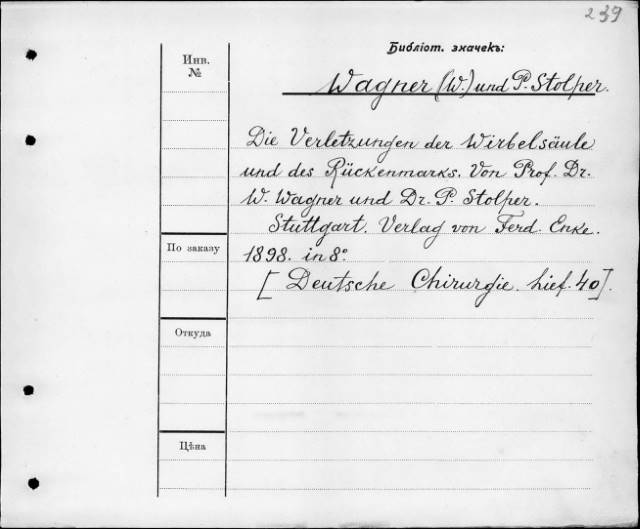 239
Библіот. значекъ:
Инв.
№
Wagner (W.) und P. Stolper.
Die Verletzungen der Wirbelsäule
und des Rückenmarks. Von Prof. Dr.
W. Wagner und Dr. P. Stolper.
Stuttgart. Verlag von Ferd. Enke.
По заказу
1898. in 8°
[Deutsche Chirurgie. Lief. 40].
Откуда
Цѣна